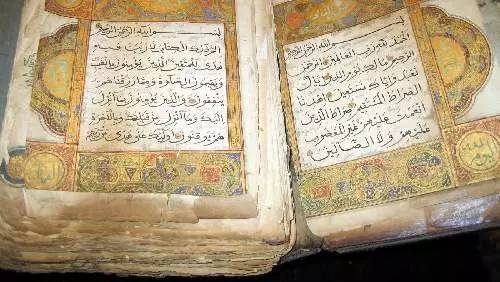 بسم الله الرحمن الرحيم
الحمد لله رب العالمين الرحمن
الرحيم مالك يوم الدين اياك
نعبد واياك نستعين اهدنا
الصراط المستقيم صراط الذين
انعمت عليهم غير المغضوب
عليهم ولا الضالين
بسم الله الرحمن الرحيم
الم ذلك الكتاب لا ريب فيه
هدى للمتقين الذين يؤمنون بالغيب
ويقيمون الصلوة ومما رزقناهم
ينفقون والذين يؤمنون بما انزل
اليك وما انزل من قبلك وبالاخرة
هم يوقنون اولئك على هدى من ربهم